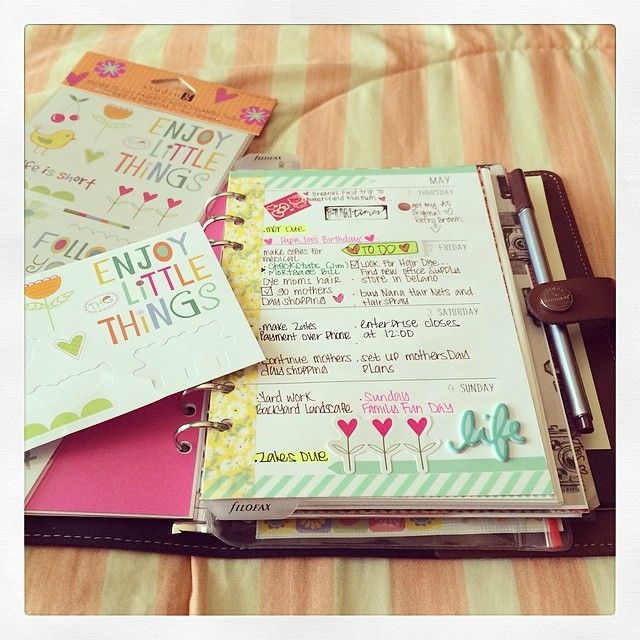 studio g
ENJOY
the
LITTLE
THINGS
life is short
FOLLOW
ENJOY
the
LITTLE
THINGS
FILOFAX
MAY
THURSDAY
field trip to
Due
Papa Joes Birthday
TO DO
2 FRIDAY
make copies for
medical
Mortgage Bill
Dye moms hair
go mothers
Day shopping
Look for Hair Dye
Find new office supply
store in Delano
buy Nana Hair Nets and
Hairspray
3 SATURDAY
.make Zales
Payment over Phone
.enterprise closes
at 12:00
continue mothers
day shopping
.set up mothersDay
plans
4 SUNDAY
Yard work
Backyard Landscape
.Sunday
Family Fun Day
life
.Zales Due
FILOFAX